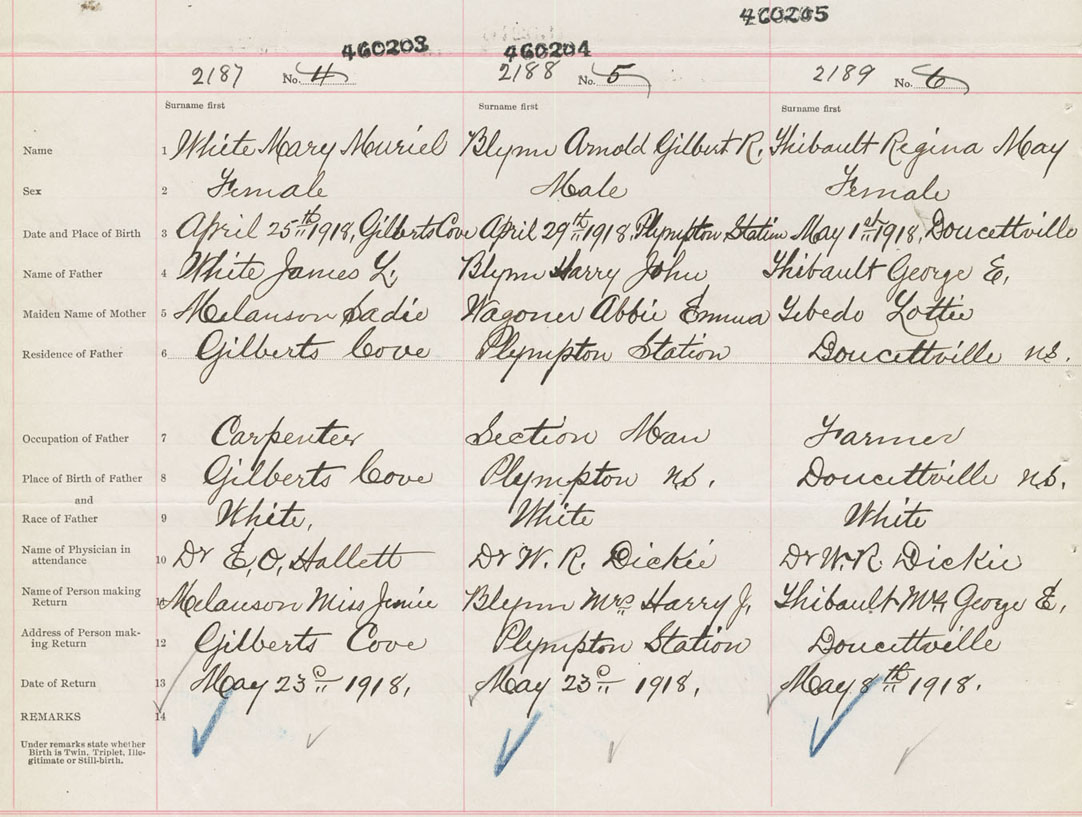 460205
460203 460204
2187 No. 4 2188 No. 5 2189 No. 6
Surname first Surname first Surname first
Name 1 White Mary Muriel Blynn Arnold Gilbert R. Thibault Regina May
Sex 2 Female Male Female
Date and Place of Birth 3 April 25th 1918, Gilberts Cove April 29th 1918, Plympton Station May 1st 1918, Doucettville
Name of Father 4 White James L. Blynn Harry John Thibault George E.
Maiden Name of Mother 5 Melanson Sadie Wagoner Abbie Emma Gebedo Lottie
Residence of Father 6 Gilberts Cove Plympton Station Doucettville n.s.
Occupation of Father 7 Carpenter Section Man Farmer
Place of Birth of Father 8 Gilberts Cove Plympton n.s. Doucettville n.s.
and
Race of Father 9 White, White White
Name of Physician in
attendance 10 Dr E. O. Hallett Dr W. R. Dickie Dr W. R. Dickie
Name of Person making
Return 11 Melanson Miss Jennie Blynn Mrs Harry J. Thibault Mrs George E.
Address of Person mak-
ing Return 12 Gilberts Cove Plympton Station Doucettville
Date of Return 13 May 23rd 1918. May 23rd 1918. May 8th 1918.
REMARKS 14
Under remarks state whether
Birth is Twin, Triplet, Ille-
gitimate or Still-birth.